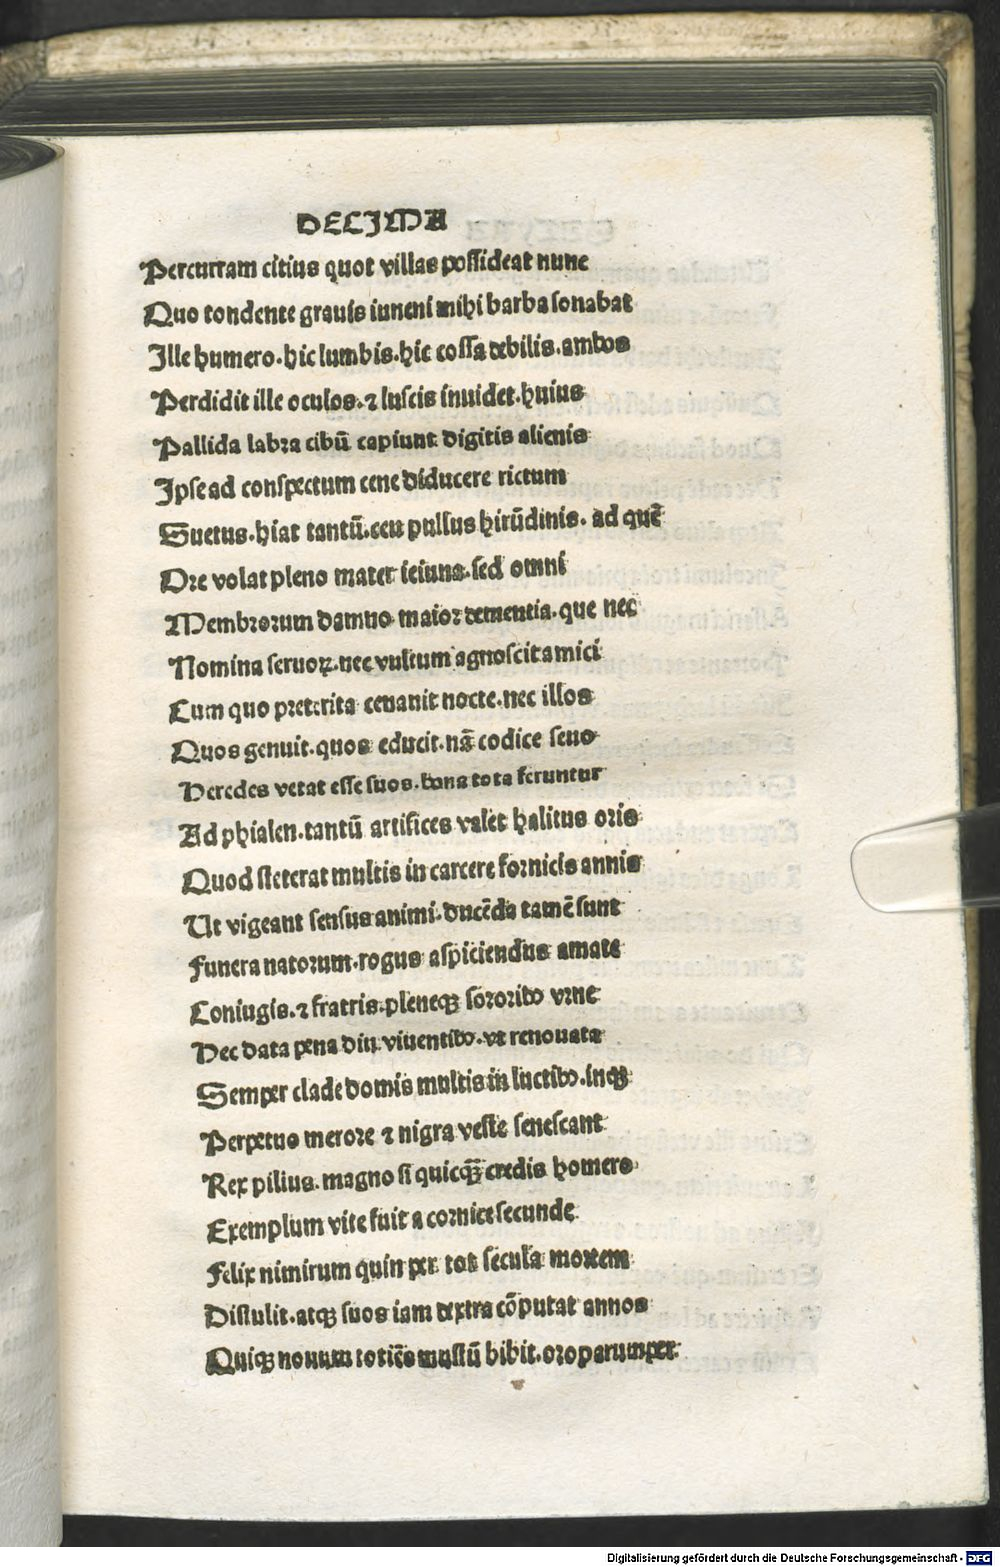 DECIMA
Percurram citius quot villas possideat nunc
Quo tondente grauis iuueni mihi barba sonabat
Ille humero.hic lumbis.hic cossa debilis.ambos
Perdidit ille oculos.⁊ luscis inuidet.huius
Pallida labra cibū capiunt digitis alienis
Ipse ad conspectum cene diducere rictum
Suetus.hiat tantū.ceu pullus hirūdinis. ad quē
Ore volat pleno mater ieiuna.sed omni
Membrorum damno maior dementia.que nec
Nomina seruoꝝ.nec vultum agnoscit amici
Cum quo preterita cenauit nocte.nec illos
Quos genuit.quos educit.nā codice seuo
Heredes vetat esse suos.bona tota feruntur
Ad phialen.tantū artifices valet halitus oris
Quod steterat multis in carcere fornicis annis
Ut vigeant sensus animi.ducēda tamē sunt
Funera natorum.rogus aspiciendus amate
Coniugis.⁊ fratris.pleneqꝫ sororibꝰ vrne
Hec data pena diu viuentibꝰ.vt renouata
Semper clade domis multis in luctibꝰ.inqꝫ
Perpetuo merore ⁊ nigra veste senescant
Rex pilius.magno si quicqꝫ̄ credis homero
Exemplum vite fuit a cornice secunde
Felix nimirum quin per tot secula mortem
Distulit.atqꝫ suos iam dextra cōputat annos
Quiqꝫ nouum totiēs mustū bibit.oro parumper
Digitalisierung gefördert durch die Deutsche Forschungsgemeinschaft - DFG